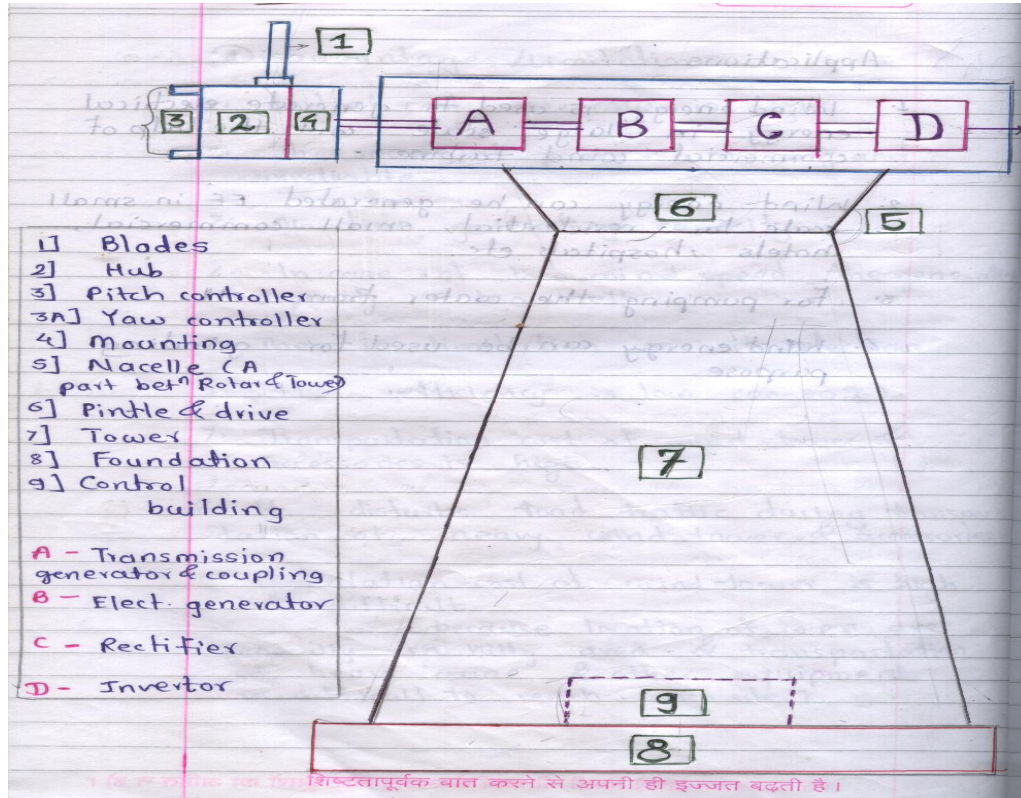 1
3 2 4 A B C D
6
5
1] Blades
2] Hub
3] Pitch controller
3A] Yaw controller
4] Mounting
5] Nacelle (A
part betn Rotar & Tower)
6] Pintle & drive
7] Tower
8] Foundation
9] Control
building
A - Transmission
generator & coupling
B - Elect. generator
C - Rectifier
D - Invertor
7
9
8
शिष्टतापूर्वक बात करने से अपनी ही इज्जत बढ़ती है।